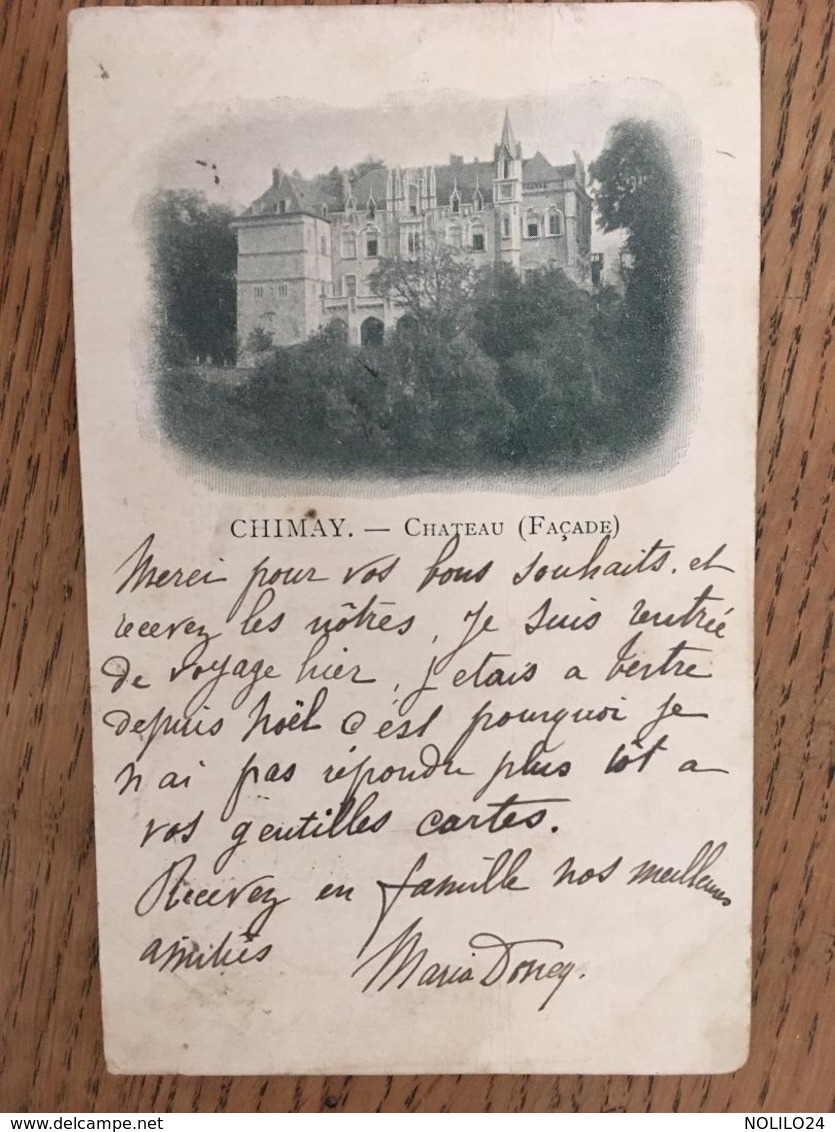 CHIMAY. — CHATEAU (FAÇADE)
Merci pour vos bons souhaits. et
recevez les nôtres, Je suis rentrée
de voyage hier, j'etais a
depuis Noël c'est pourquoi je
n'ai pas répondu plus tôt a
vos gentilles cartes.
Recevez en famille nos meilleures
amitiés Maria
NOLILO24